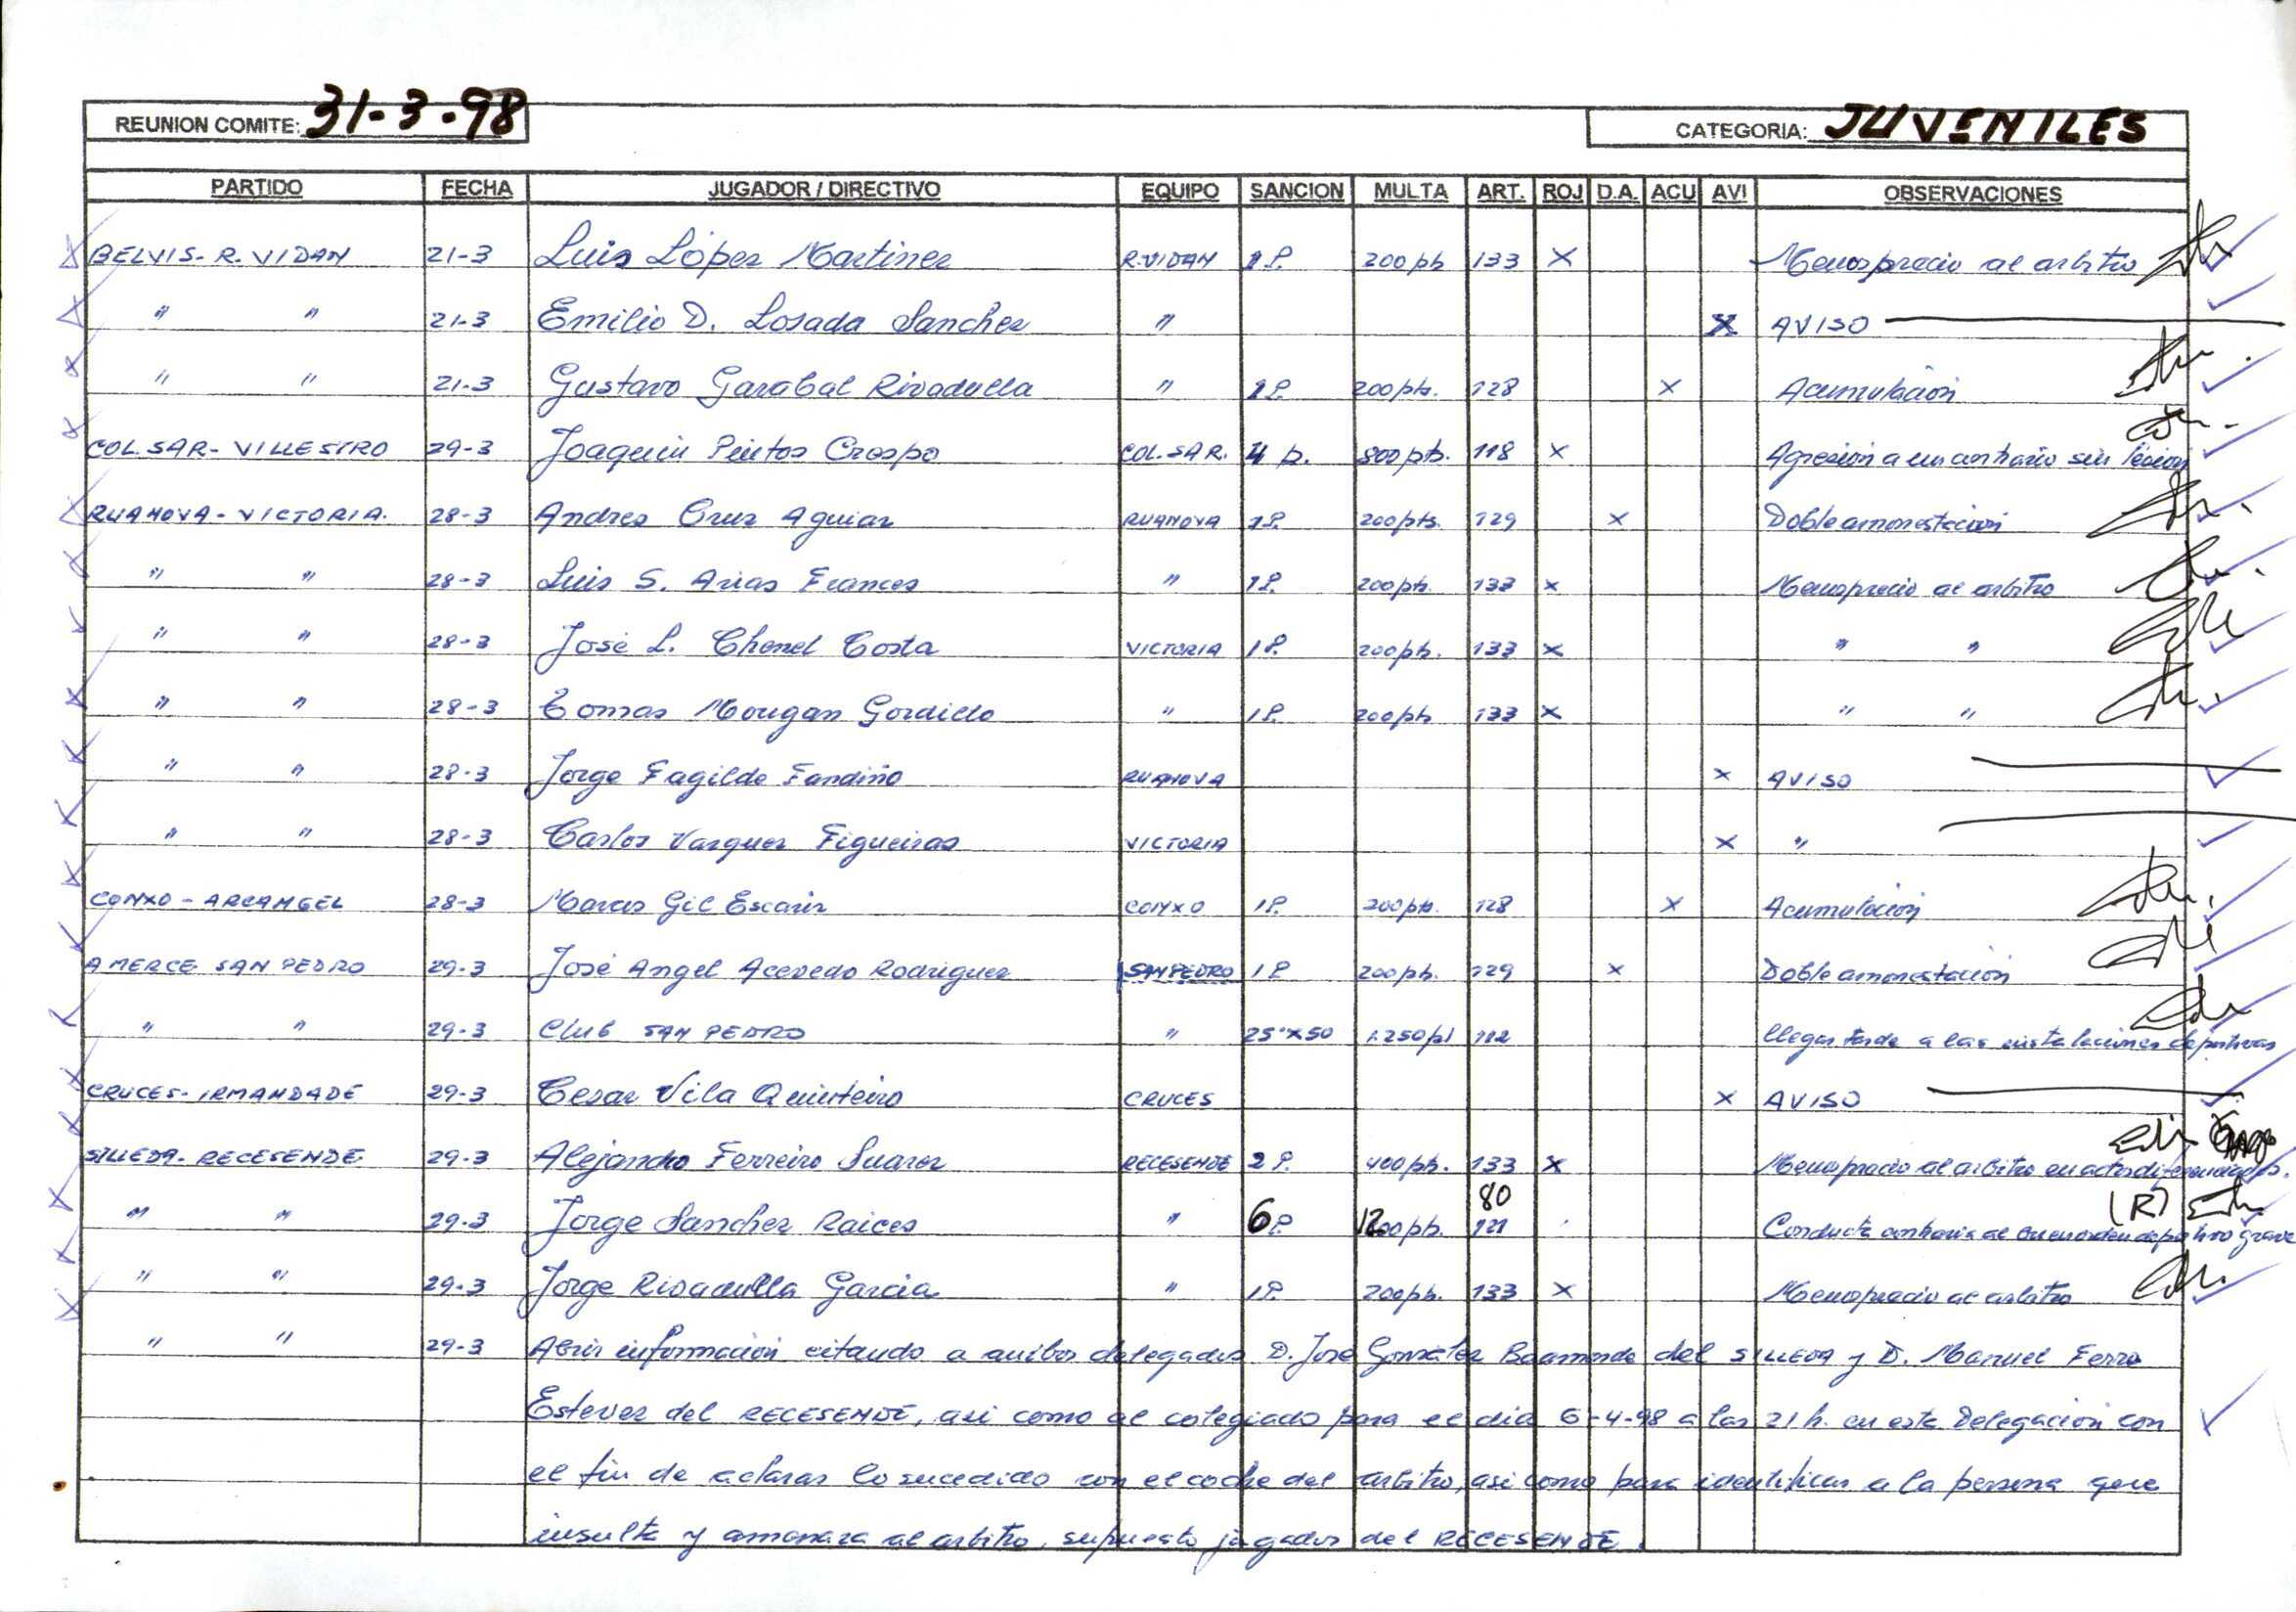 REUNION COMITE: 31-3-98 CATEGORIA: JUVENILES
PARTIDO FECHA JUGADOR / DIRECTIVO EQUIPO SANCION MULTA ART. ROJ D.A. ACU AVI OBSERVACIONES
BELVIS- R. VIDAN 21-3 Luis López Martinez R.VIDAN 1P. 200 pts 133 X Menosprecio al arbitro
" " 21-3 Emilio D. Losada Sanchez " X AVISO
" " 21-3 Gustavo Garabal Rivadulla " 1P. 200 pts. 128 X Acumulación
COL. SAR- VILLESTRO 29-3 Joaquin Pintos Crespo COL. SAR. 4 p. 800 pts. 118 X Agresión a un contrario sin lesión
RUANOVA - VICTORIA. 28-3 Andres Cruz Aguiar RUANOVA 1P. 200 pts. 129 X Doble amonestación
" " 28-3 Luis S. Arias Frances " 1P. 200 pts. 133 X Menosprecio al arbitro
" " 28-3 José L. Chenel Costa VICTORIA 1P. 200 pts. 133 X " "
" " 28-3 Tomas Mougan Gordillo " 1P. 200 pts 133 X " "
" " 28-3 Jorge Fagilde Fandiño RUANOVA X AVISO
" " 28-3 Carlos Vazquez Figueiras VICTORIA X "
CONXO - ARCANGEL 28-3 Marcos Gil Escariz CONXO 1P. 200 pts. 128 X Acumulación
AMERCE SAN PEDRO 29-3 José Angel Acevedo Rodriguez SAN PEDRO 1P. 200 pts. 129 X Doble amonestación
" " 29-3 Club SAN PEDRO " 25'X50 1.250 pt 112 llegar tarde a las instalaciones deportivas
CRUCES- IRMANDADE 29-3 Cesar Vila Quinteiro CRUCES X AVISO
SILLEDA- RECESENDE 29-3 Alejandro Ferreiro Suarez RECESENDE 2 P. 400 pts. 133 X Menosprecio al arbitro en actos diferenciados.
" " 29-3 Jorge Sanchez Raices " 6P. 1200 pts. 80 121 Conducta contraria al buen orden deportivo grave (R)
" " 29-3 Jorge Rivadulla Garcia " 1P. 200 pts. 133 X Menosprecio al arbitro
" " 29-3 Abrir información citando a ambos delegados D. José González Baamonde del SILLEDA y D. Manuel Ferro
Estevez del RECESENDE, asi como al colegiado para el dia 6-4-98 a las 21 h. en esta Delegación con
el fin de aclarar lo sucedido con el coche del arbitro, asi como para identificar a la persona que
insulta y amenaza al arbitro, supuesto jugador del RECESENDE.